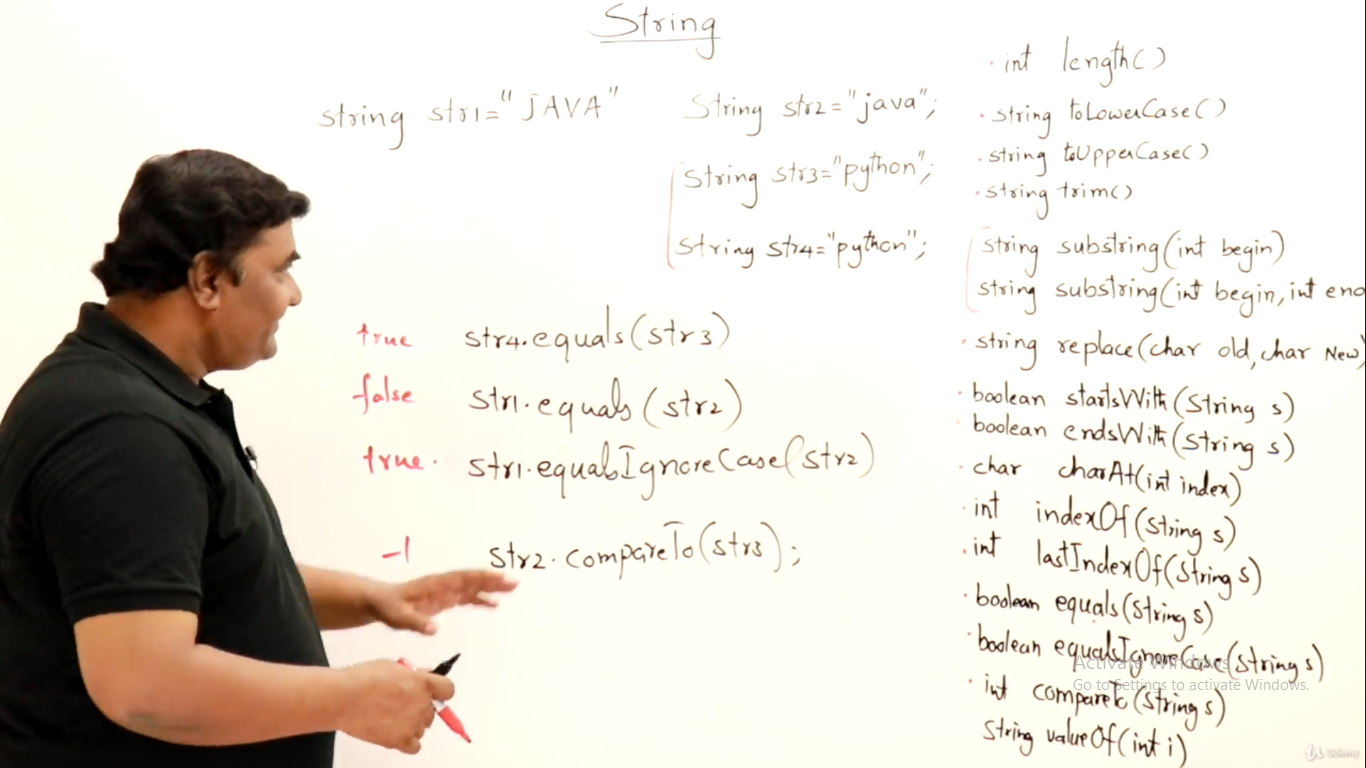 String
string str1="JAVA"
String str2="java";
String str3="python";
String str4="python";
true str4.equals(str3)
false str1.equals(str2)
true. str1.equalsIgnoreCase(str2)
-1 str2.compareTo(str3);
. int length()
. string toLowerCase()
. string toUpperCase()
. string trim()
string substring(int begin)
string substring(int begin, int end
. string replace(char old, char New)
. boolean startsWith(String s)
. boolean endsWith(String s)
. char charAt(int index)
. int indexOf(String s)
. int lastIndexOf(String s)
. boolean equals(String s)
. boolean equalsIgnoreCase(String s)
. int compareTo(String s)
String valueOf(int i)
Activate Windows
Go to Settings to activate Windows.
Udemy